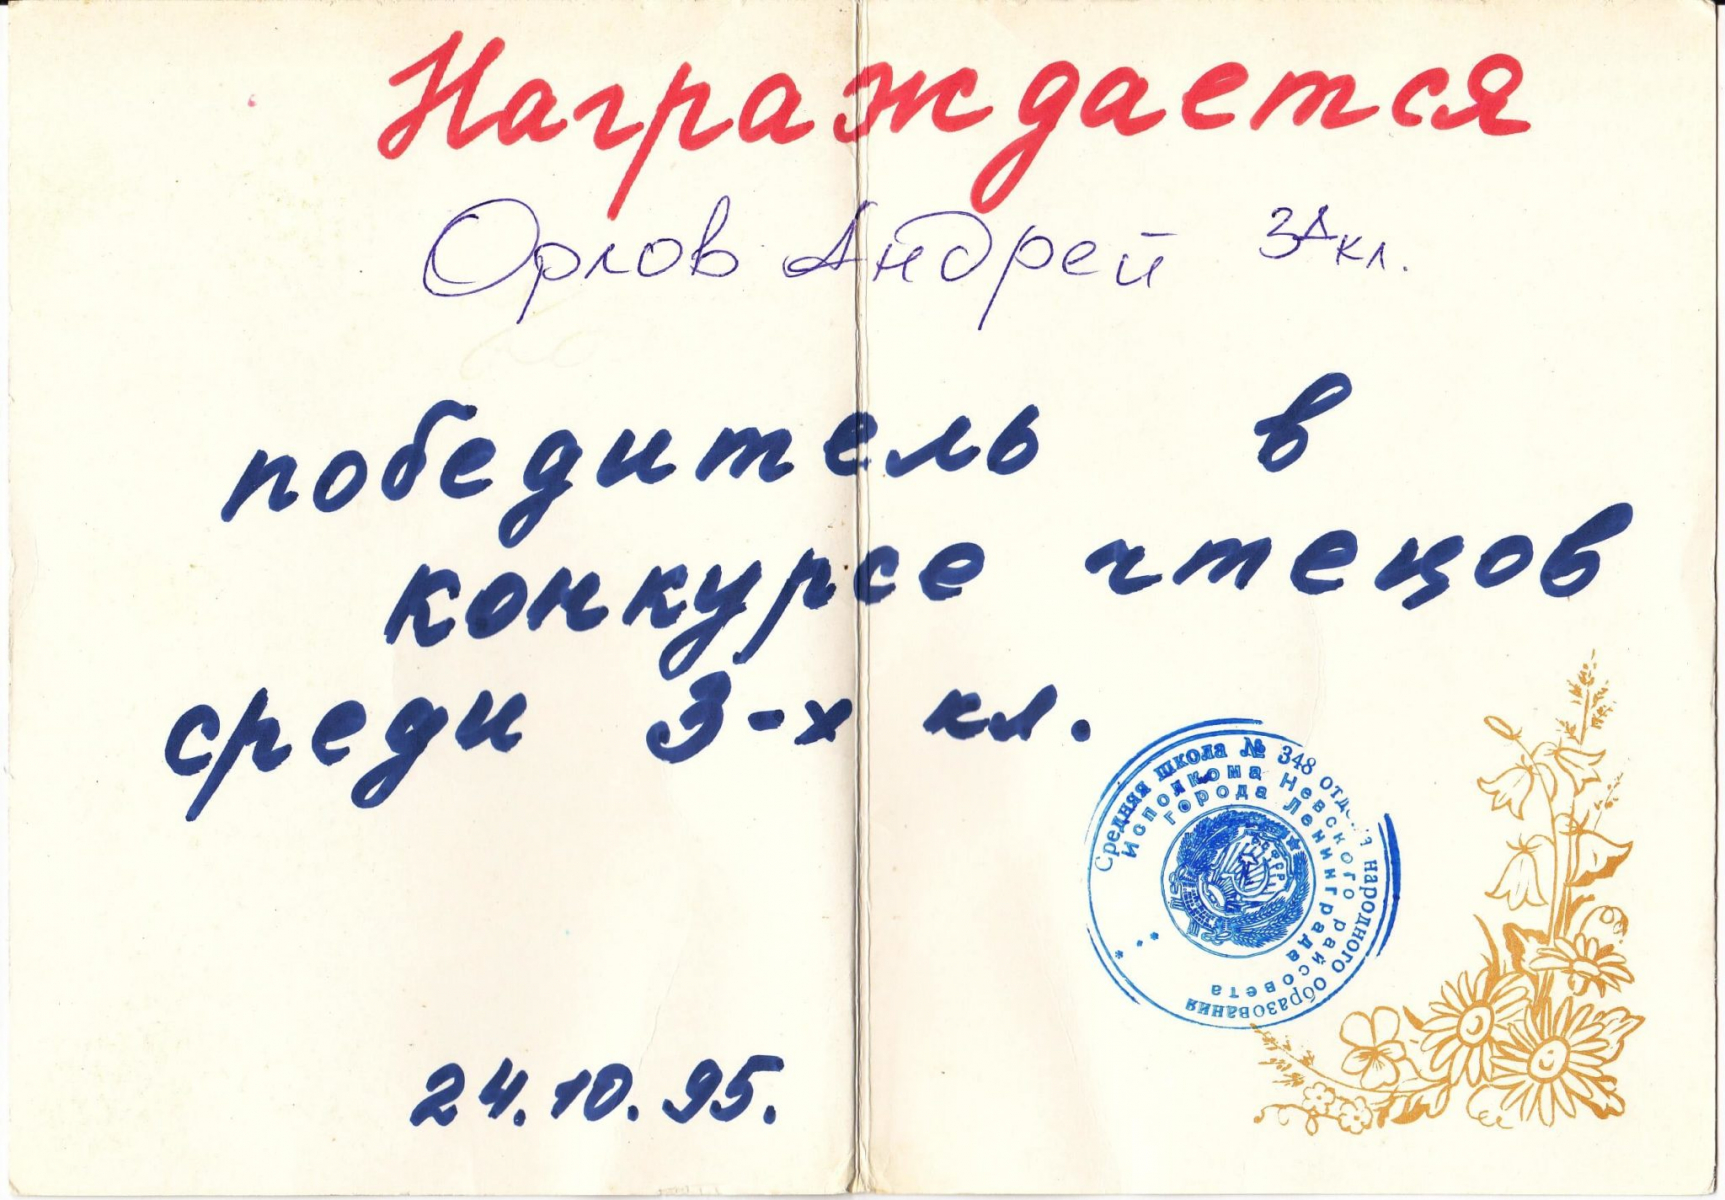 Награждается
Орлов Андрей 3А кл.
победитель в
конкурсе чтецов
среди 3-х кл.
Средняя школа № 348 отдела народного образования
Исполкома Невского райсовета
города Ленинграда
РСФСР
24.10.95.